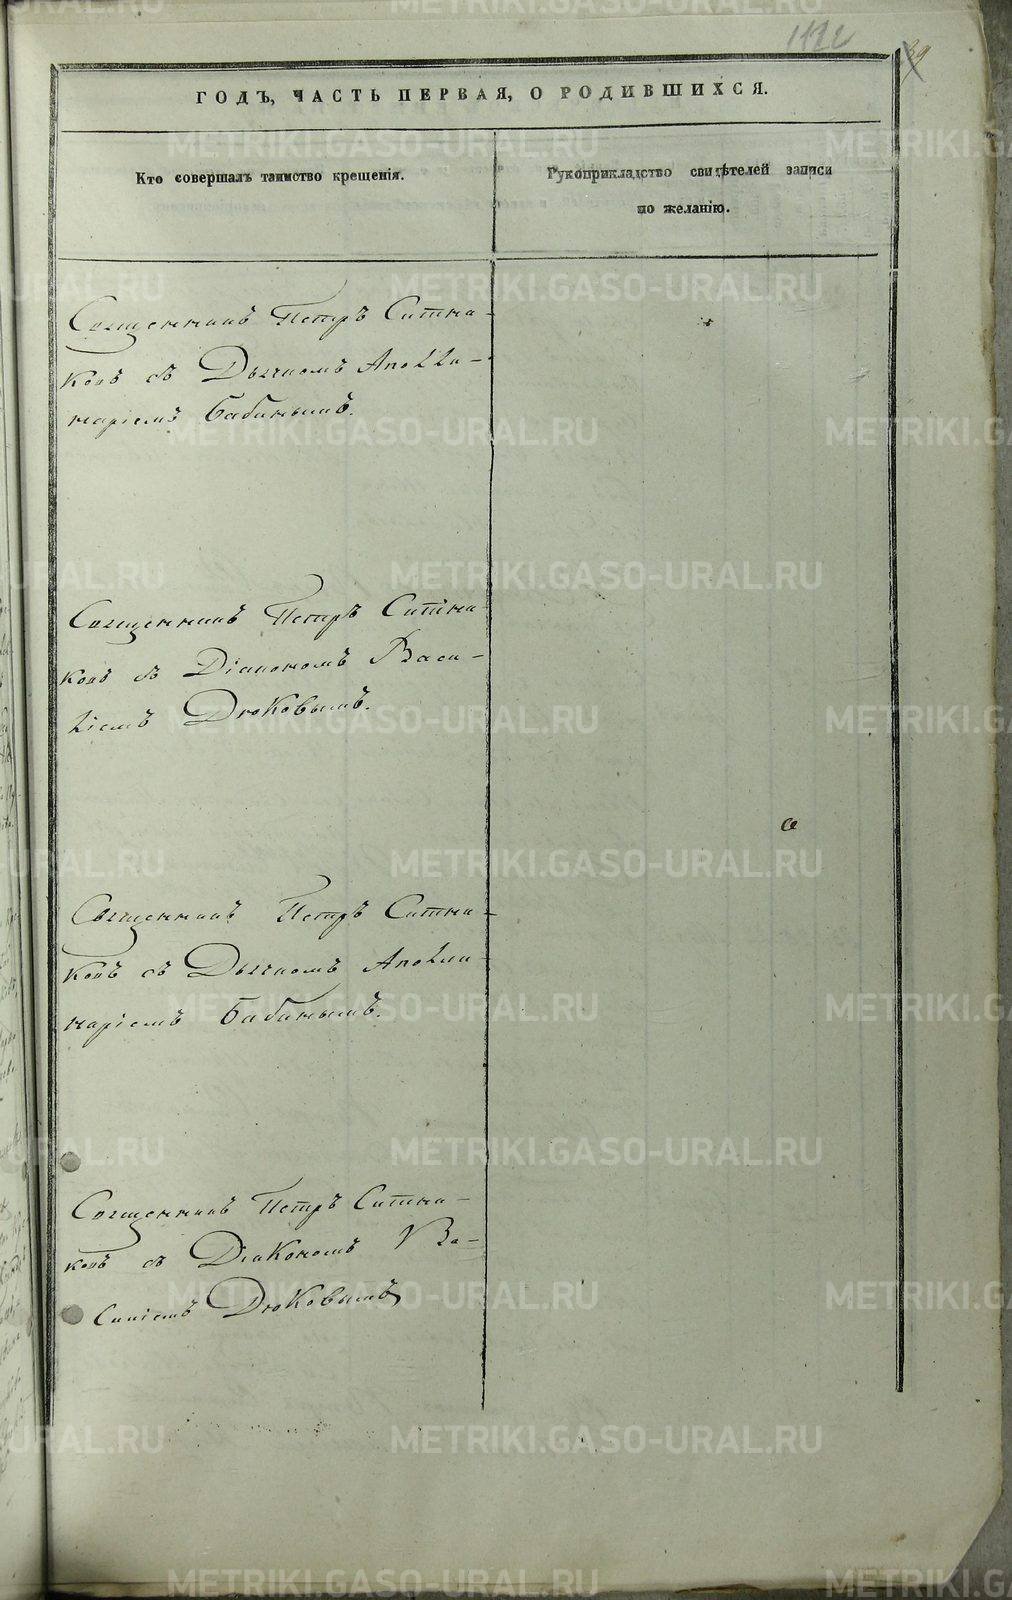 39
ГОДЪ, ЧАСТЬ ПЕРВАЯ, О РОДИВШИХСЯ.
Кто совершалъ таинство крещенія.
Рукоприкладство свидѣтелей записи
по желанію.
Священникъ Петръ Ситни-
ковъ съ Дьячкомъ Аполли-
наріемъ Бабинымъ.
Священникъ Петръ Ситни-
ковъ съ Діакономъ Васи-
ліемъ Дюковымъ.
Священникъ Петръ Ситни-
ковъ съ Дьячкомъ Аполли-
наріемъ Бабинымъ.
Священникъ Петръ Ситни-
ковъ съ Діакономъ Ва-
силіемъ Дюковымъ
METRIKI.GASO-URAL.RU